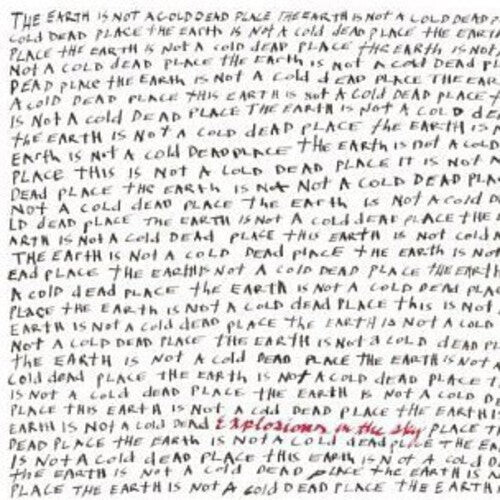 THE EARTH IS NOT A COLD DEAD PLACE THE EARTH IS NOT A COLD DEAD
COLD DEAD PLACE THE EARTH IS NOT A COLD DEAD PLACE THE EARTH
PLACE THE EARTH IS NOT A COLD DEAD PLACE THE EARTH IS NOT
NOT A COLD DEAD PLACE THE EARTH IS NOT A COLD DEAD PL
DEAD PLACE THE EARTH IS NOT A COLD DEAD PLACE THE EAR
A COLD DEAD PLACE THIS EARTH IS NOT A COLD DEAD PLACE
IS NOT A COLD DEAD PLACE THE EARTH IS NOT A COLD DE
THE EARTH IS NOT A COLD DEAD PLACE THE EARTH IS
EARTH IS NOT A COLD DEAD PLACE THE EARTH IS NOT A COLD
PLACE THIS IS NOT A COLD DEAD PLACE IT IS NOT A
DEAD PLACE THE EARTH IS NOT NOT A COLD DEAD PLA
NOT A COLD DEAD PLACE THE EARTH IS NOT A COLD D
LD DEAD PLACE THE EARTH IS NOT A COLD DEAF PLACE THE
ARTH IS NOT A COLD DEAD PLACE THIS EARTH IS NOT COLD
THE EARTH IS NOT A COLD DEAD PLACE THE EARTH IS NOT
EAD PLACE THE EARTH IS NOT A COLD DEAD PLACE THE EARTH
A COLD DEAD PLACE THE EARTH IS NOT A COLD DEAD PLA
PLACE THE EARTH IS NOT A COLD DEAD PLACE THIS IS NOT
EARTH IS NOT A COLD DEAD PLACE THE EARTH IS NOT A COLD
NOT A COLD DEAD PLACE THE EARTH IS NOT A COLD DEAD PL
THE EARTH IS NOT A COLD DEAD PLACE THE EARTH IS NOT A
COLD DEAD PLACE THE EARTH IS NOT A COLD DEAD PLACE T
IS NOT A COLD DEAD PLACE THE EARTH IS NOT A COLD DE
PLACE THIS EARTH IS NOT A COLD DEAD PLACE THE EARTH
EARTH IS NOT A COLD DEAD Explosions in the sky PLACE T
DEAD PLACE THE EARTH IS NOT A COLD DEAD PLACE THE EA
IS NOT A COLD DEAD PLACE THIS EARTH IS NOT A COLD
THE EARTH IS NOT A COLD DEAD PLACE THE EARTH IS NOT
PLACE THE EARTH IS NOT A COLD DEAD PLACE THE EARTH